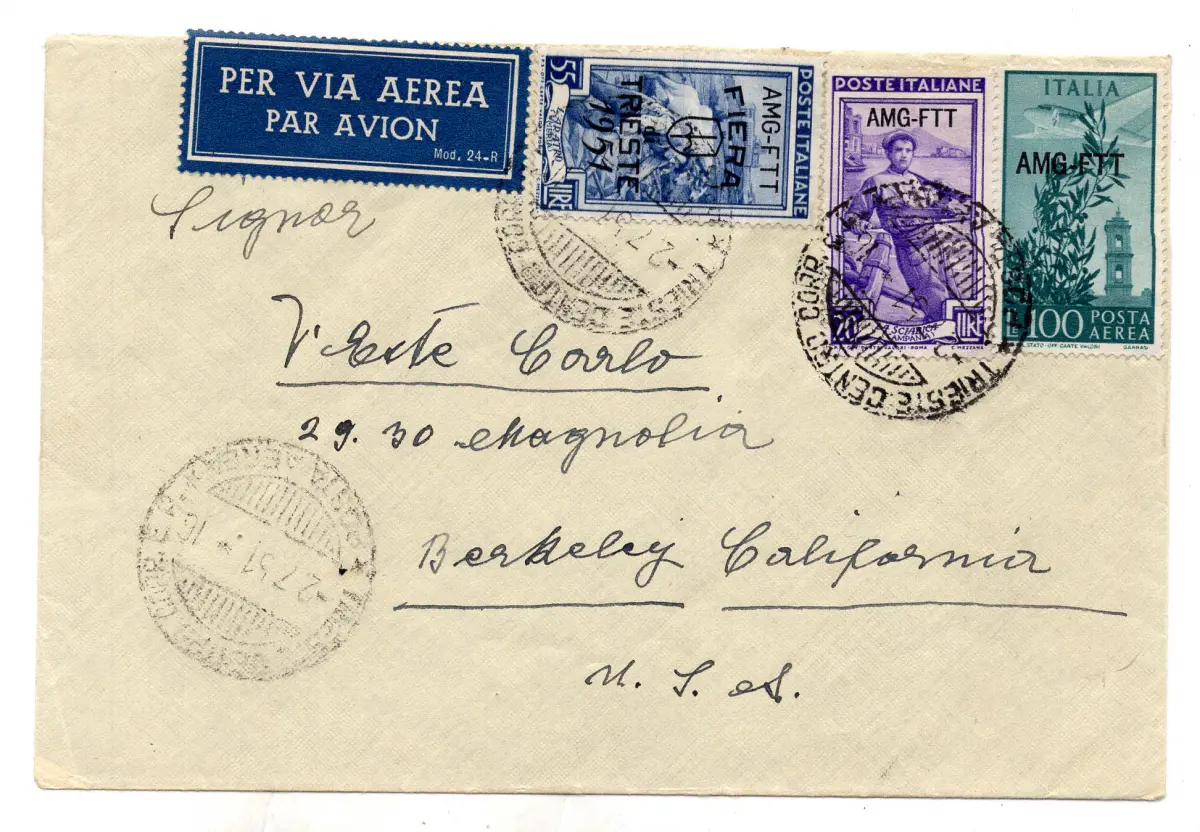 PER VIA AEREA
PAR AVION
Mod. 24-R
POSTE ITALIANE
AMG-FTT
FIERA
di
TRIESTE
1951
55
LIRE
POSTE ITALIANE
AMG-FTT
LA SCIABICA
CAMPANIA
20
LIRE
C. MEZZANA
ITALIA
AMG-FTT
L.100 POSTA
AEREA
TRIESTE CENTRO CORR.
2.7.51
TRIESTE CENTRO CORR.
Signor
Carlo
29.30 Magnolia
Berkeley California
U. S. A.
POSTA AEREA
-2.7.51